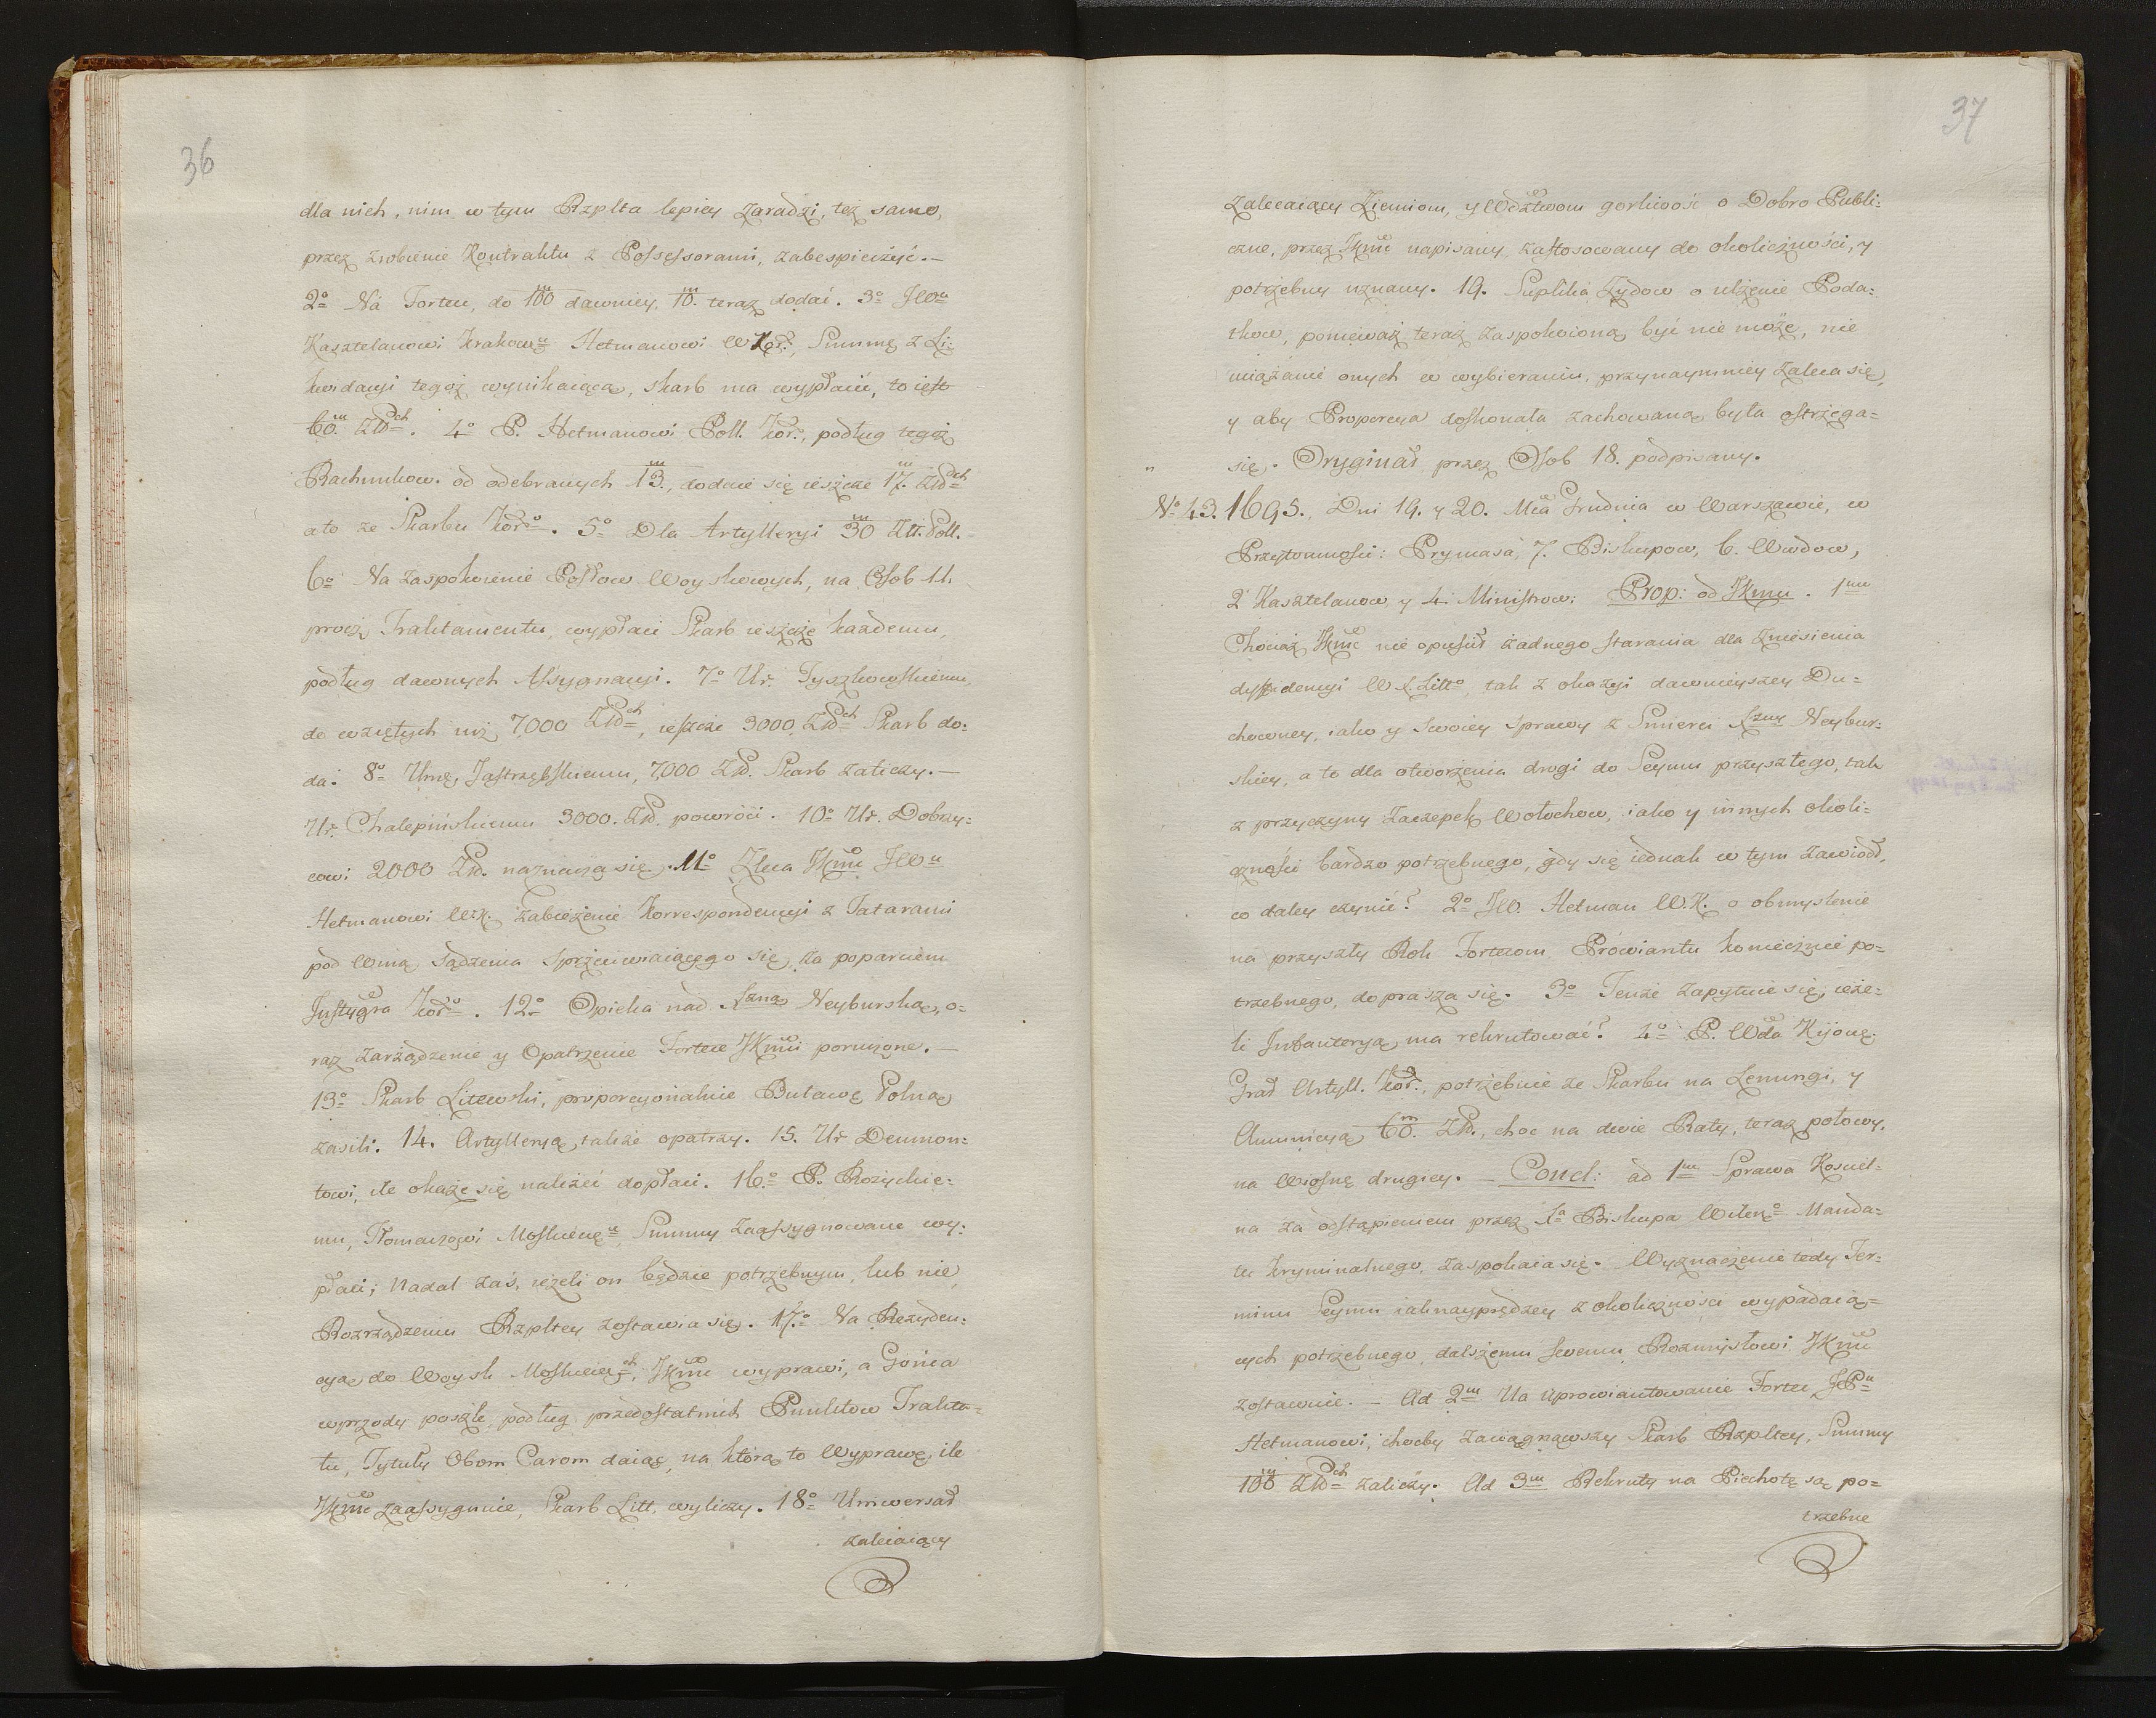 36
dla nich, nim w tym Rzplta lepiey zaradzi, też samo,
przez zrobienie Kontraktu z Possessorami, zabespieczyć.—
2º Na Fortece, do 100 m dawniey, 10. m teraz dodać. 3º JWu
Kasztelanowi Krakowu Hetmanowi WKor., Summę z Li=
kwidacyi tegoż wynikaiącą, skarb ma wypłacić, to iest
60. m Złłch. 4º P. Hetmanowi Poll. Kor., podług tegoż
Rachunkow. od odebranych 13. m, dodaie się ieszcze 17. m Złłch
a to ze Skarbu Korº. 5º Dla Artylleryi 30 m Złł. Poll.
6º Na zaspokoienie Posłow Woyskowych, na Osob 11.
procz Traktamentu, wypłaci Skarb ieszcze każdemu,
podług dawnych Assygnacyi. 7º Ur. Tyszkowskiemu
do wziętych iuż 7,000 Złłch, ieszcze 3000, Złłch Skarb do=
da. 8º Urnę. Jastrzębskiemu, 7,000 Złł. Skarb zaliczy.—
Ur. Chalepińskiemu 3000. Złł. powróci. 10º Ur. Dobrzy=
cowi 2000 Złł. naznacza się. 11º Zleca JKmć JWu
Hetmanowi WK. zabieżenie Korrespondencyi z Tatarami
pod winą sądzenia sprzeciwiaiącego się, za poparciem
Instygra Korº. 12º Opieka nad Xżną Neyburską, o=
raz zarządzenie y Opatrzenie Fortec JKmci poruczone.—
13º Skarb Litewski, proporcyonalnie Buławę Polną
zasili. 14. Artylleryą, także opatrzy. 15. Ur Deumon=
towi, ile okaże się należeć dopłaci. 16.º P. Rożyckie=
mu, Tłomaczowi Moskiewu, Summy zaassygnowane wy=
płaci; nadal zaś, ieżeli on będzie potrzebnym, lub nie,
Rozrządzeniu Rzpltey zostawia się. 17.º Na Rezyden=
cyą do Woysk Moskiewch, JKmć wyprawi, a Gońca
wprzody poszle, podług przedostatnich Punktow Trakta=
tu, Tytuły Obom Carom daiąc, na którą to Wyprawę, ile
JKmć zaassygnuie, Skarb Litt. wyliczy. 18º Uniwersał
zalecaiący
37
Zalecaiący Ziemiom, y Wdztwom gorliwość o Dobro Publi=
czne, przez JKmć napisany zastosowany do okoliczności, y
potrzebny uznany. 19. Suplika Żydow o ulżenie Poda=
tkow, ponieważ teraz zaspokoioną być nie może, nie
uciążanie onych w wybieraniu, przynaymniey zaleca się,
y aby Proporcya doskonała zachowana była ostrzega=
" się. Oryginał przez Osob 18. podpisany.
Nº 43. 1695., Dni 19. y 20. Mca Grudnia w Warszawie, w
Przytomności: Prymasa, 7. Biskupow, 6. Wwdow,
2 Kasztelanow y 4. Ministrow: Prop: od JKmci. 1mu
Chociaż JKmć nie opuścił żadnego starania dla zniesienia
dyffidencyi WX. Littº, tak z okazyi dawnieyszey Du=
chowney, iako y swoiey sprawy z Smierci Xżny Neybur=
skiey, a to dla otworzenia drogi do Seymu przyszłego, tak
z przyczyny zaczepek Wołochow, iako y innych okoli=
czności bardzo potrzebnego, gdy się iednak w tym zawiodł,
co daley czynić? 2º JW. Hetman W.K. o obmyślenie
na przyszły Rok Fortecom Prowiantu koniecznie po=
trzebnego, doprasza się. 3º Tenże zapytuie się, ieże=
li Infanteryą ma rekrutować? 4º P. Wda Kijow:
Grał Artyll. Kor., potrzebuie ze Skarbu na Lenungi, y
Amunicyą 60. m Złł., choc na dwie Raty, teraz połowy,
na Wiosnę drugiey.— Concl: ad 1m Sprawa Koscieł=
na za odstąpieniem przez Xa Biskupa Wileń:º Manda=
tu kryminalnego, zaspokaia się. Wyznaczenie tedy Ter=
minu Seymu iaknayprędzey z okoliczności wypadaią=
cych potrzebnego, dalszemu swemu Rozmysłowi JKmć
zostawuie.— Ad 2m Na uprowiantowanie Fortec JPu
Hetmanowi, choćby zaciągnąwszy Skarb Rzpltey, Summy
100 m Złłch zaliczy. Ad 3m Rekruty na Piechotę są po=
trzebne